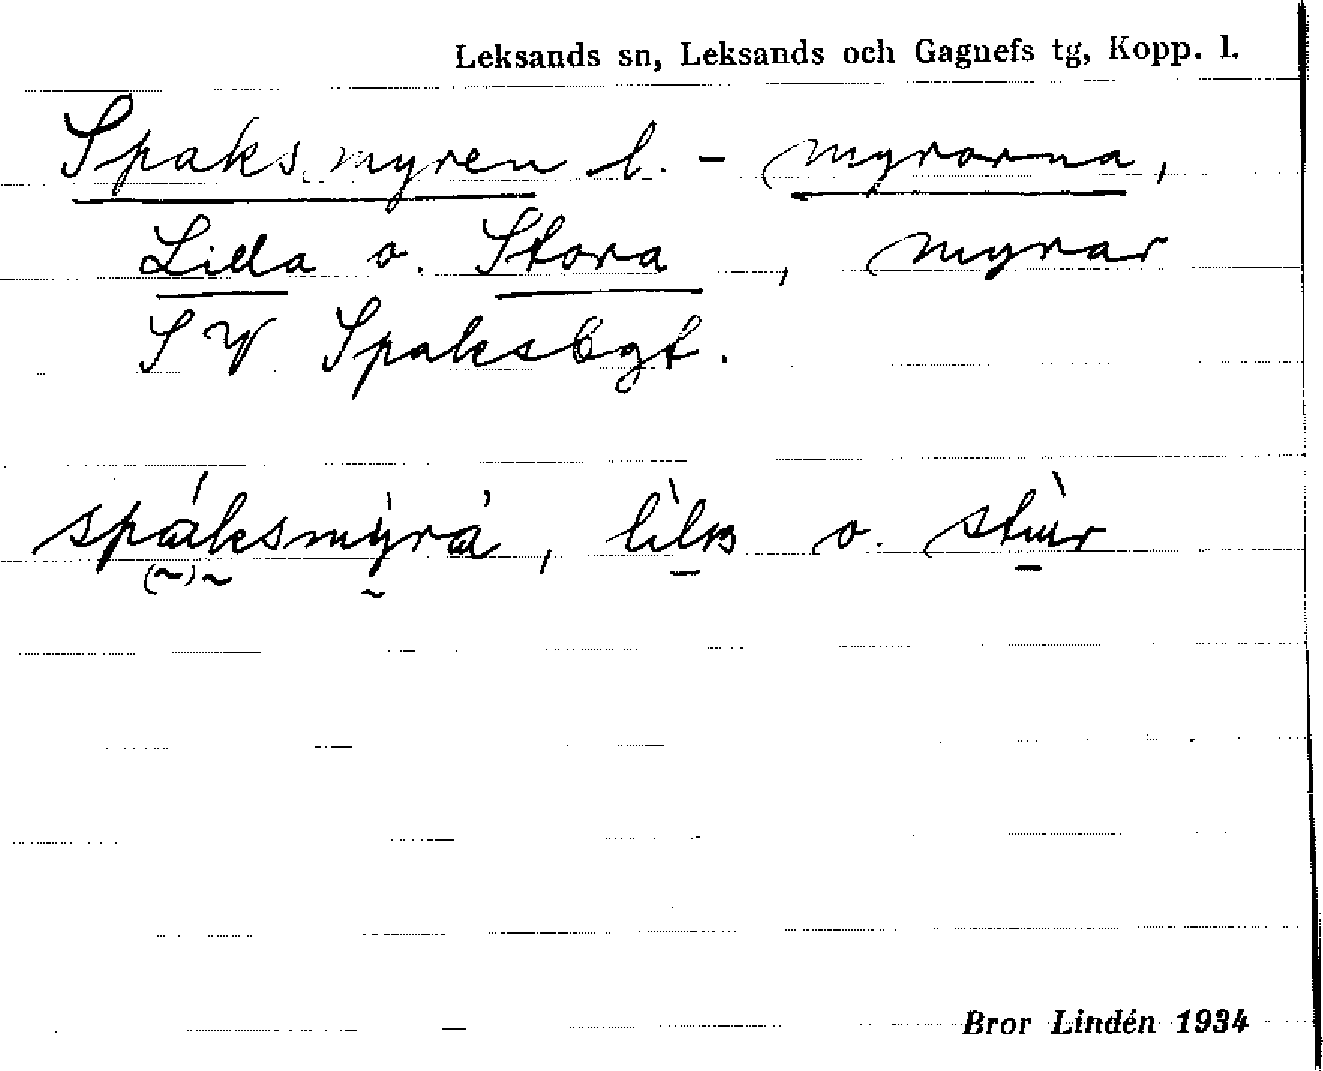 Leksands sn, Leksands och Gagnefs tg, Kopp. l.
Spaksmyren l. - myrorna,
Lilla o. Stora, myrar
SV Spaksbgt.
spáksmỳrà, lìlɞ o. stùr
Bror Lindén 1934